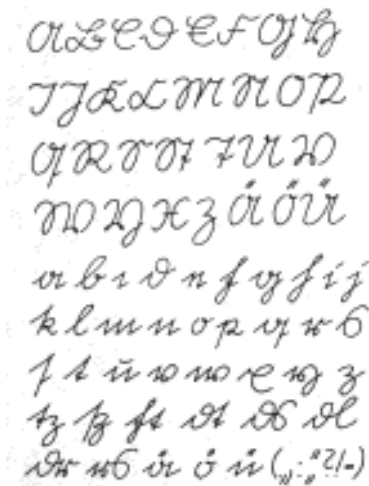 A B C D E F G H
I J K L M N O P
Q R S St T U V
W Y X Z Ä Ö Ü
a b c d e f g h i j
k l m n o p q r s
ſ t u v w x y z
tz ß ſt dt ds dl
dr rs ä ö ü